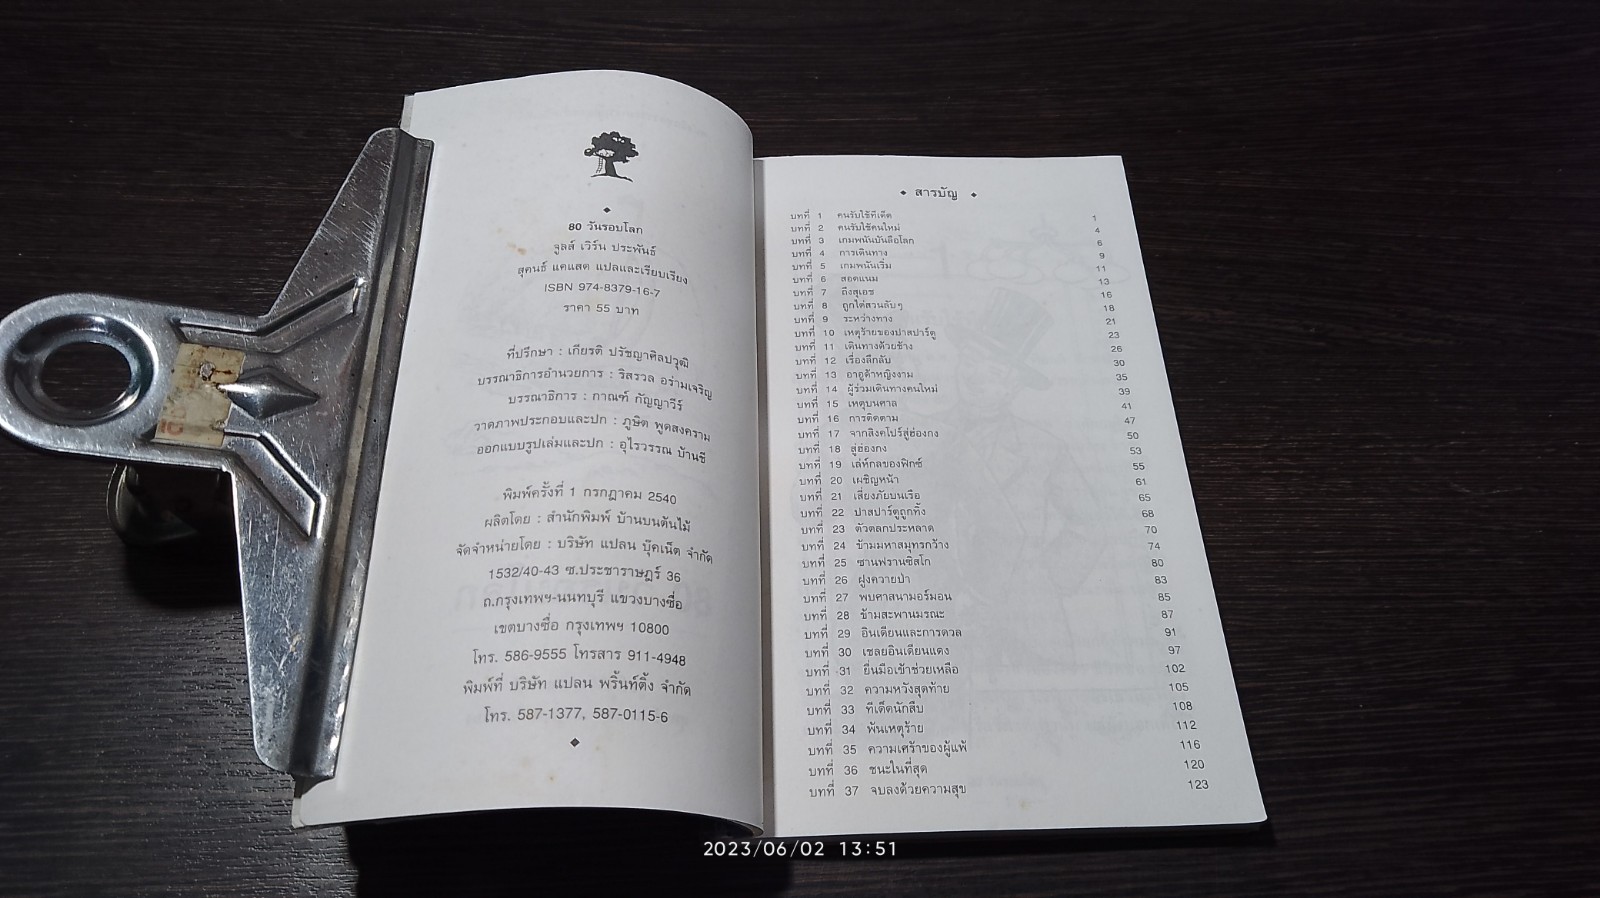 80 วันรอบโลก
จูลส์ เวิร์น ประพันธ์
สุคนธ์ แคแสด แปลและเรียบเรียง
ISBN 974-8379-16-7
ราคา 55 บาท
ที่ปรึกษา : เกียรติ ปรัชญาศิลปวุฒิ
บรรณาธิการอำนวยการ : ริสรวล อร่ามเจริญ
บรรณาธิการ : กาณฑ์ กัญญาวีร์
วาดภาพประกอบและปก : ภูษิต พูดสงคราม
ออกแบบรูปเล่มและปก : อุไรวรรณ บ้านชี
พิมพ์ครั้งที่ 1 กรกฎาคม 2540
ผลิตโดย : สำนักพิมพ์ บ้านบนต้นไม้
จัดจำหน่ายโดย : บริษัท แปลน บุ๊คเน็ต จำกัด
1532/40-43 ซ.ประชาราษฎร์ 36
ถ.กรุงเทพฯ-นนทบุรี แขวงบางซื่อ
เขตบางซื่อ กรุงเทพฯ 10800
โทร. 586-9555 โทรสาร 911-4948
พิมพ์ที่ บริษัท แปลน พริ้นท์ติ้ง จำกัด
โทร. 587-1377, 587-0115-6
สารบัญ
บทที่ 1 คนรับใช้ทีเด็ด 1
บทที่ 2 คนรับใช้คนใหม่ 4
บทที่ 3 เกมพนันบันลือโลก 6
บทที่ 4 การเดินทาง 9
บทที่ 5 เกมพนันเริ่ม 11
บทที่ 6 สอดแนม 13
บทที่ 7 ถึงสุเอซ 16
บทที่ 8 ถูกไต่สวนลับๆ 18
บทที่ 9 ระหว่างทาง 21
บทที่ 10 เหตุร้ายของปาสปาร์ตู 23
บทที่ 11 เดินทางด้วยช้าง 26
บทที่ 12 เรื่องลึกลับ 30
บทที่ 13 อาอูด้าหญิงงาม 35
บทที่ 14 ผู้ร่วมเดินทางคนใหม่ 39
บทที่ 15 เหตุบนศาล 41
บทที่ 16 การติดตาม 47
บทที่ 17 จากสิงคโปร์สู่ฮ่องกง 50
บทที่ 18 สู่ฮ่องกง 53
บทที่ 19 เล่ห์กลของฟิกซ์ 55
บทที่ 20 เผชิญหน้า 61
บทที่ 21 เสี่ยงภัยบนเรือ 65
บทที่ 22 ปาสปาร์ตูถูกทิ้ง 68
บทที่ 23 ตัวตลกประหลาด 70
บทที่ 24 ข้ามมหาสมุทรกว้าง 74
บทที่ 25 ซานฟรานซิสโก 80
บทที่ 26 ฝูงควายป่า 83
บทที่ 27 พบศาสนามอร์มอน 85
บทที่ 28 ข้ามสะพานมรณะ 87
บทที่ 29 อินเดียนและการดวล 91
บทที่ 30 เชลยอินเดียนแดง 97
บทที่ 31 ยื่นมือเข้าช่วยเหลือ 102
บทที่ 32 ความหวังสุดท้าย 105
บทที่ 33 ทีเด็ดนักสืบ 108
บทที่ 34 พ้นเหตุร้าย 112
บทที่ 35 ความเศร้าของผู้แพ้ 116
บทที่ 36 ชนะในที่สุด 120
บทที่ 37 จบลงด้วยความสุข 123
2023/06/02 13:51